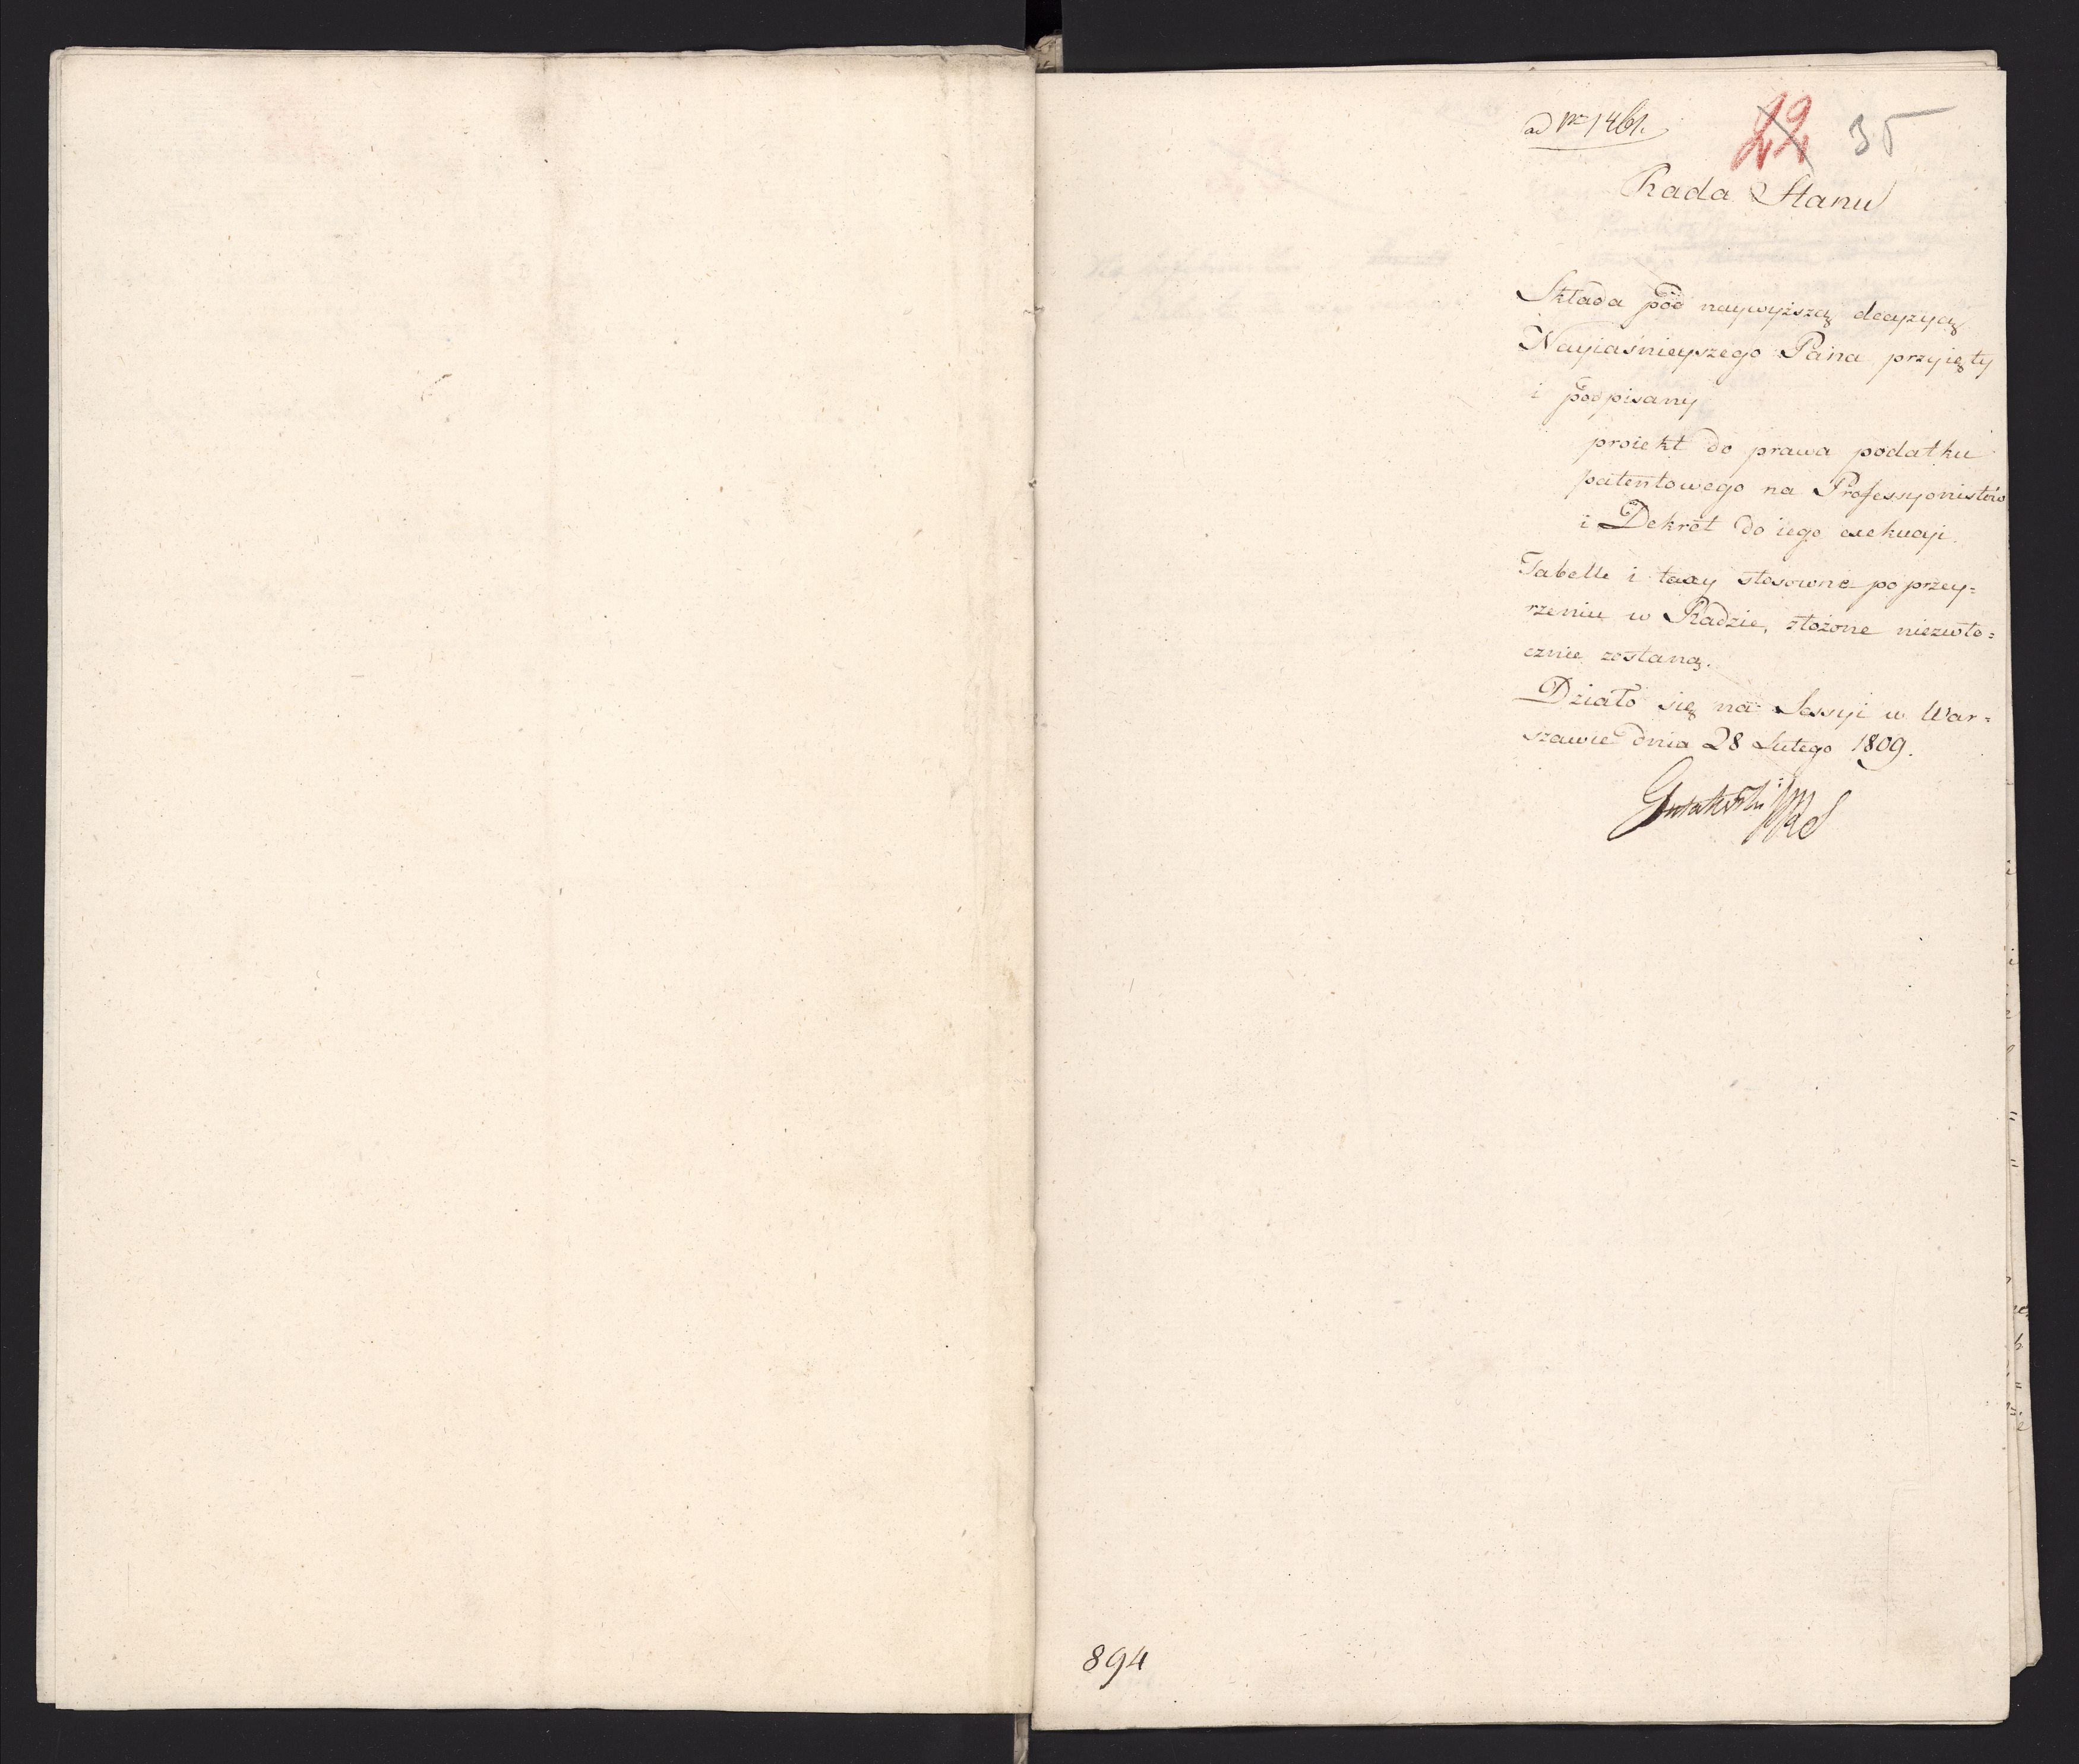 ad Nr 1461.
22 35
Rada Stanu
Składa pod naywyższą decyzyą
Nayiaśnieyszego Pana przyięty
i podpisany
proiekt do prawa podatku
patentowego na Professyonistów
i Dekret do iego exekucyi.
Tabelle i taxy stosowne po przey=
rzeniu w Radzie, złożone niezwło=
cznie zostaną.
Działo się na Sessyi w War=
szawie dnia 28 Lutego 1809.
Gutakowski PRS
894